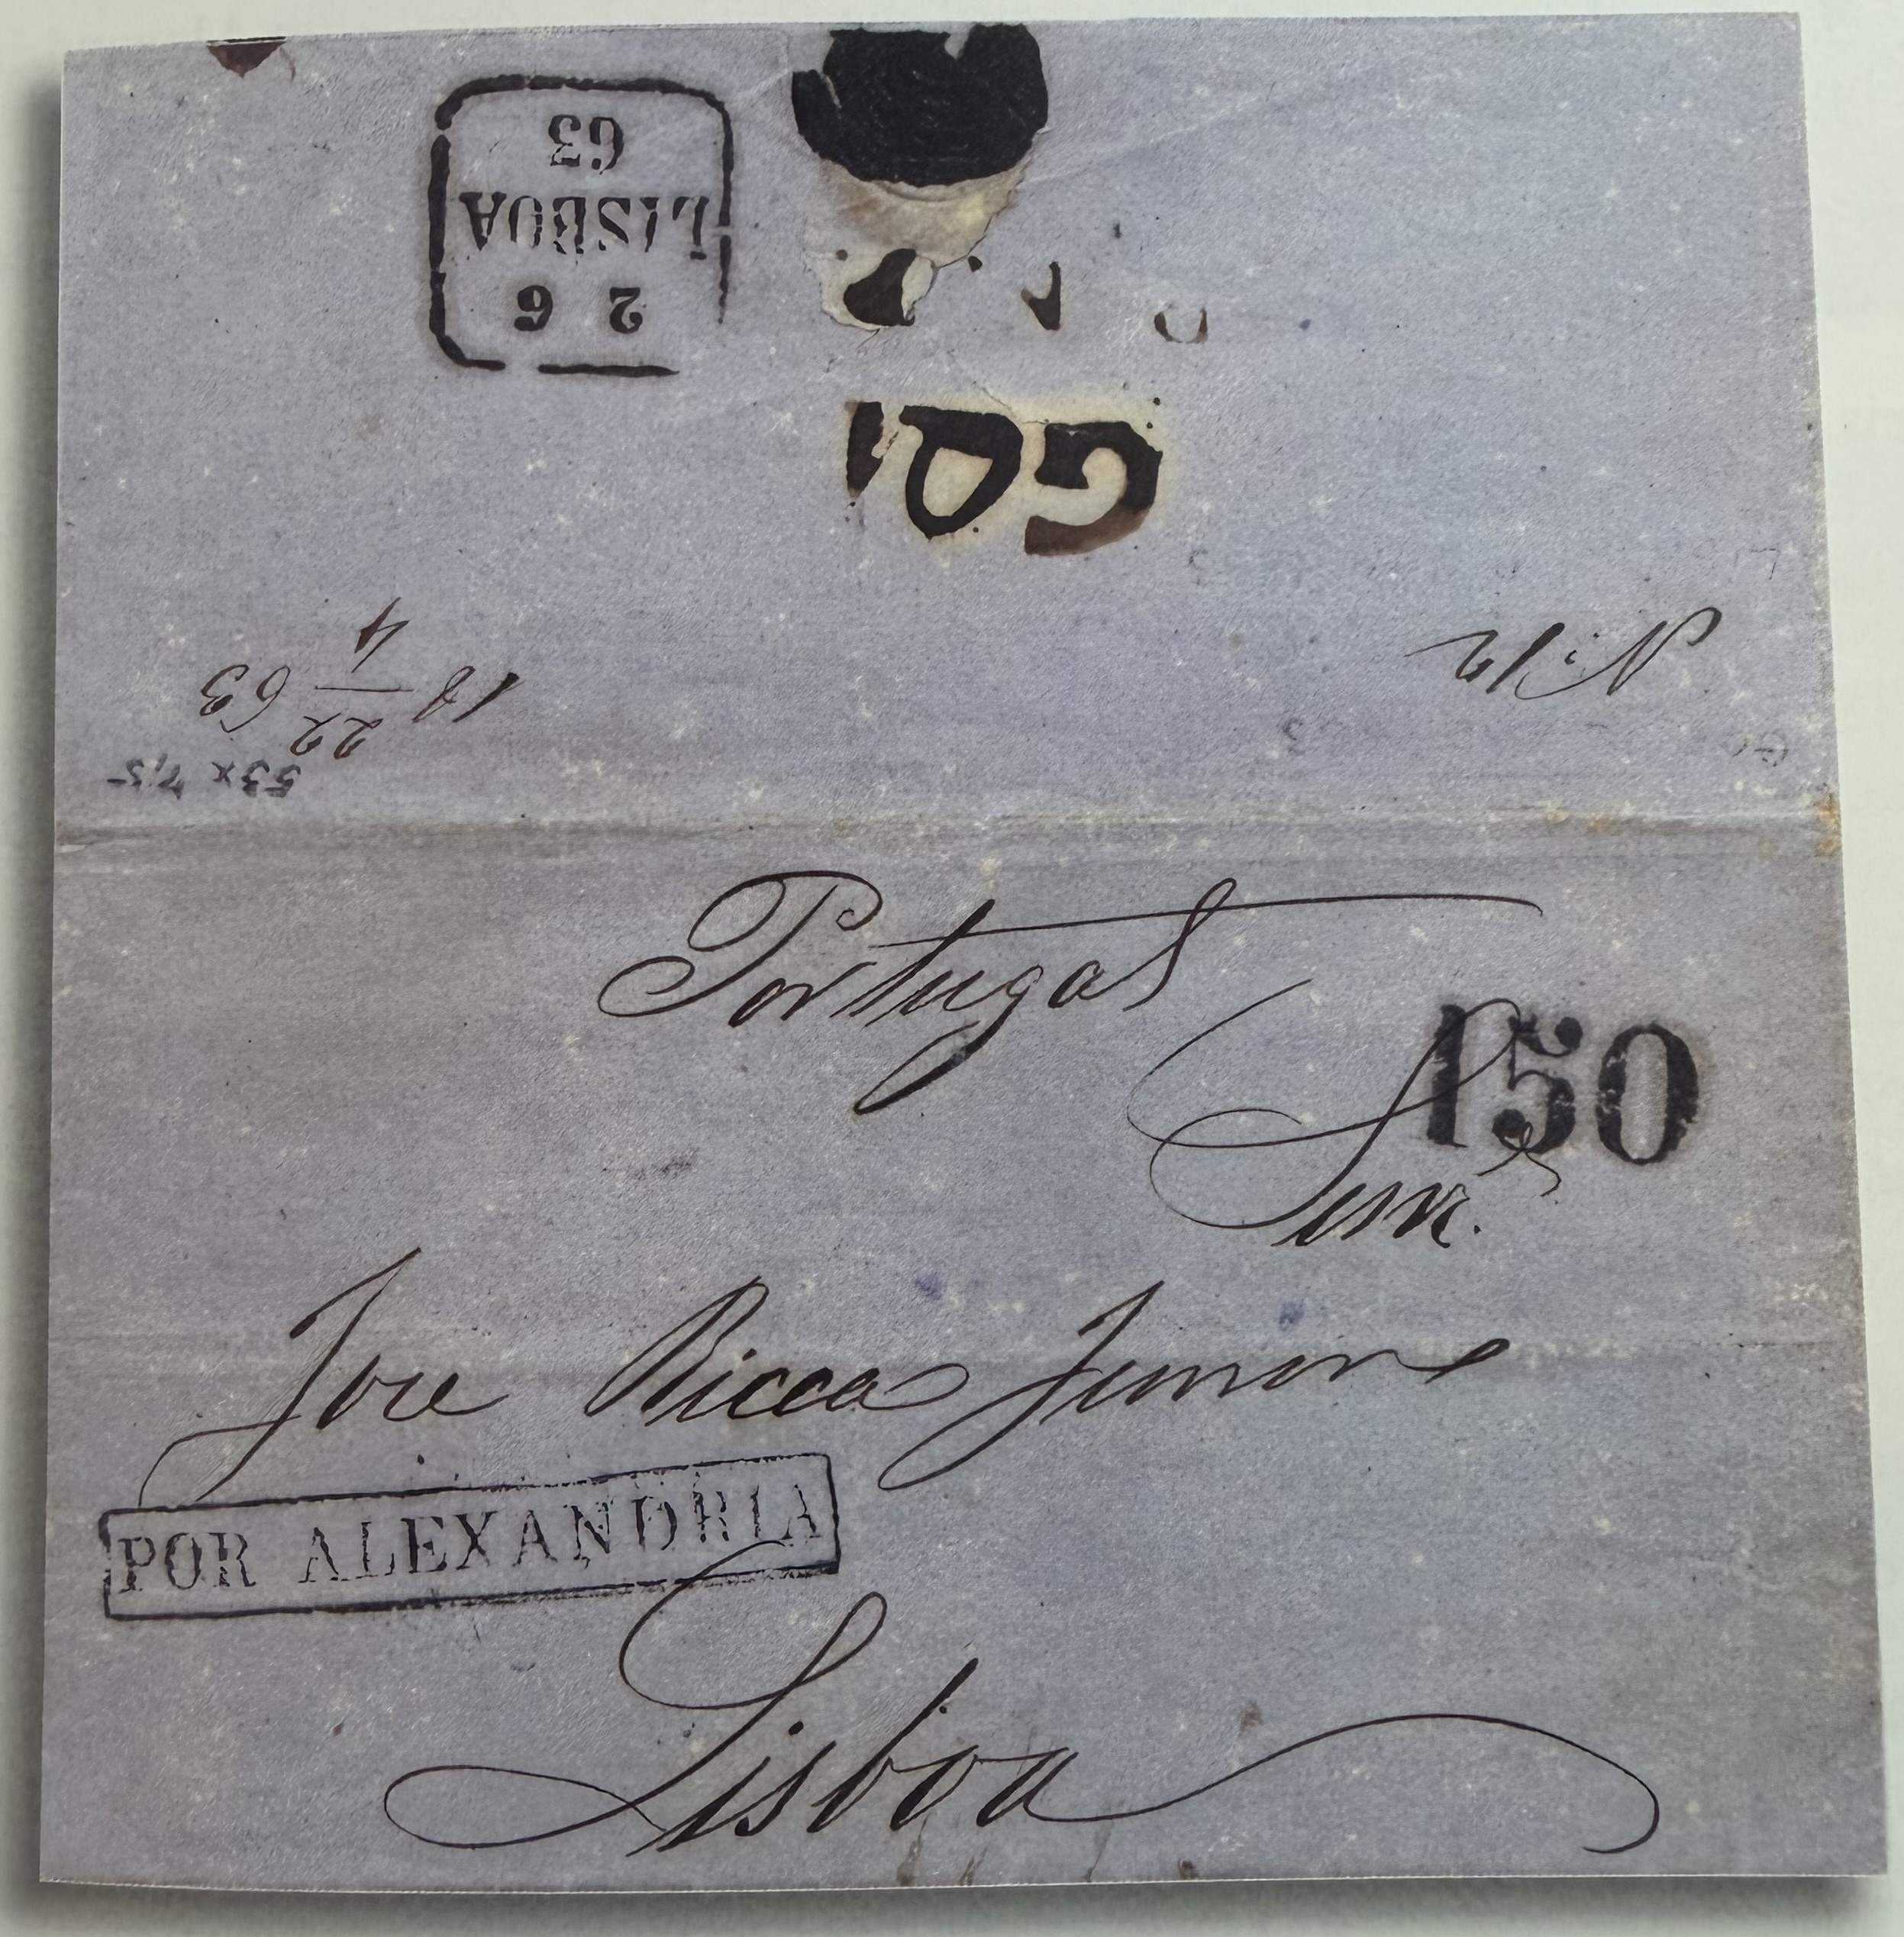 2 6
LISBOA
63
N. 12
18 22/4 63
Portugal
150
Jose Ricca Junior
POR ALEXANDRIA
Lisboa